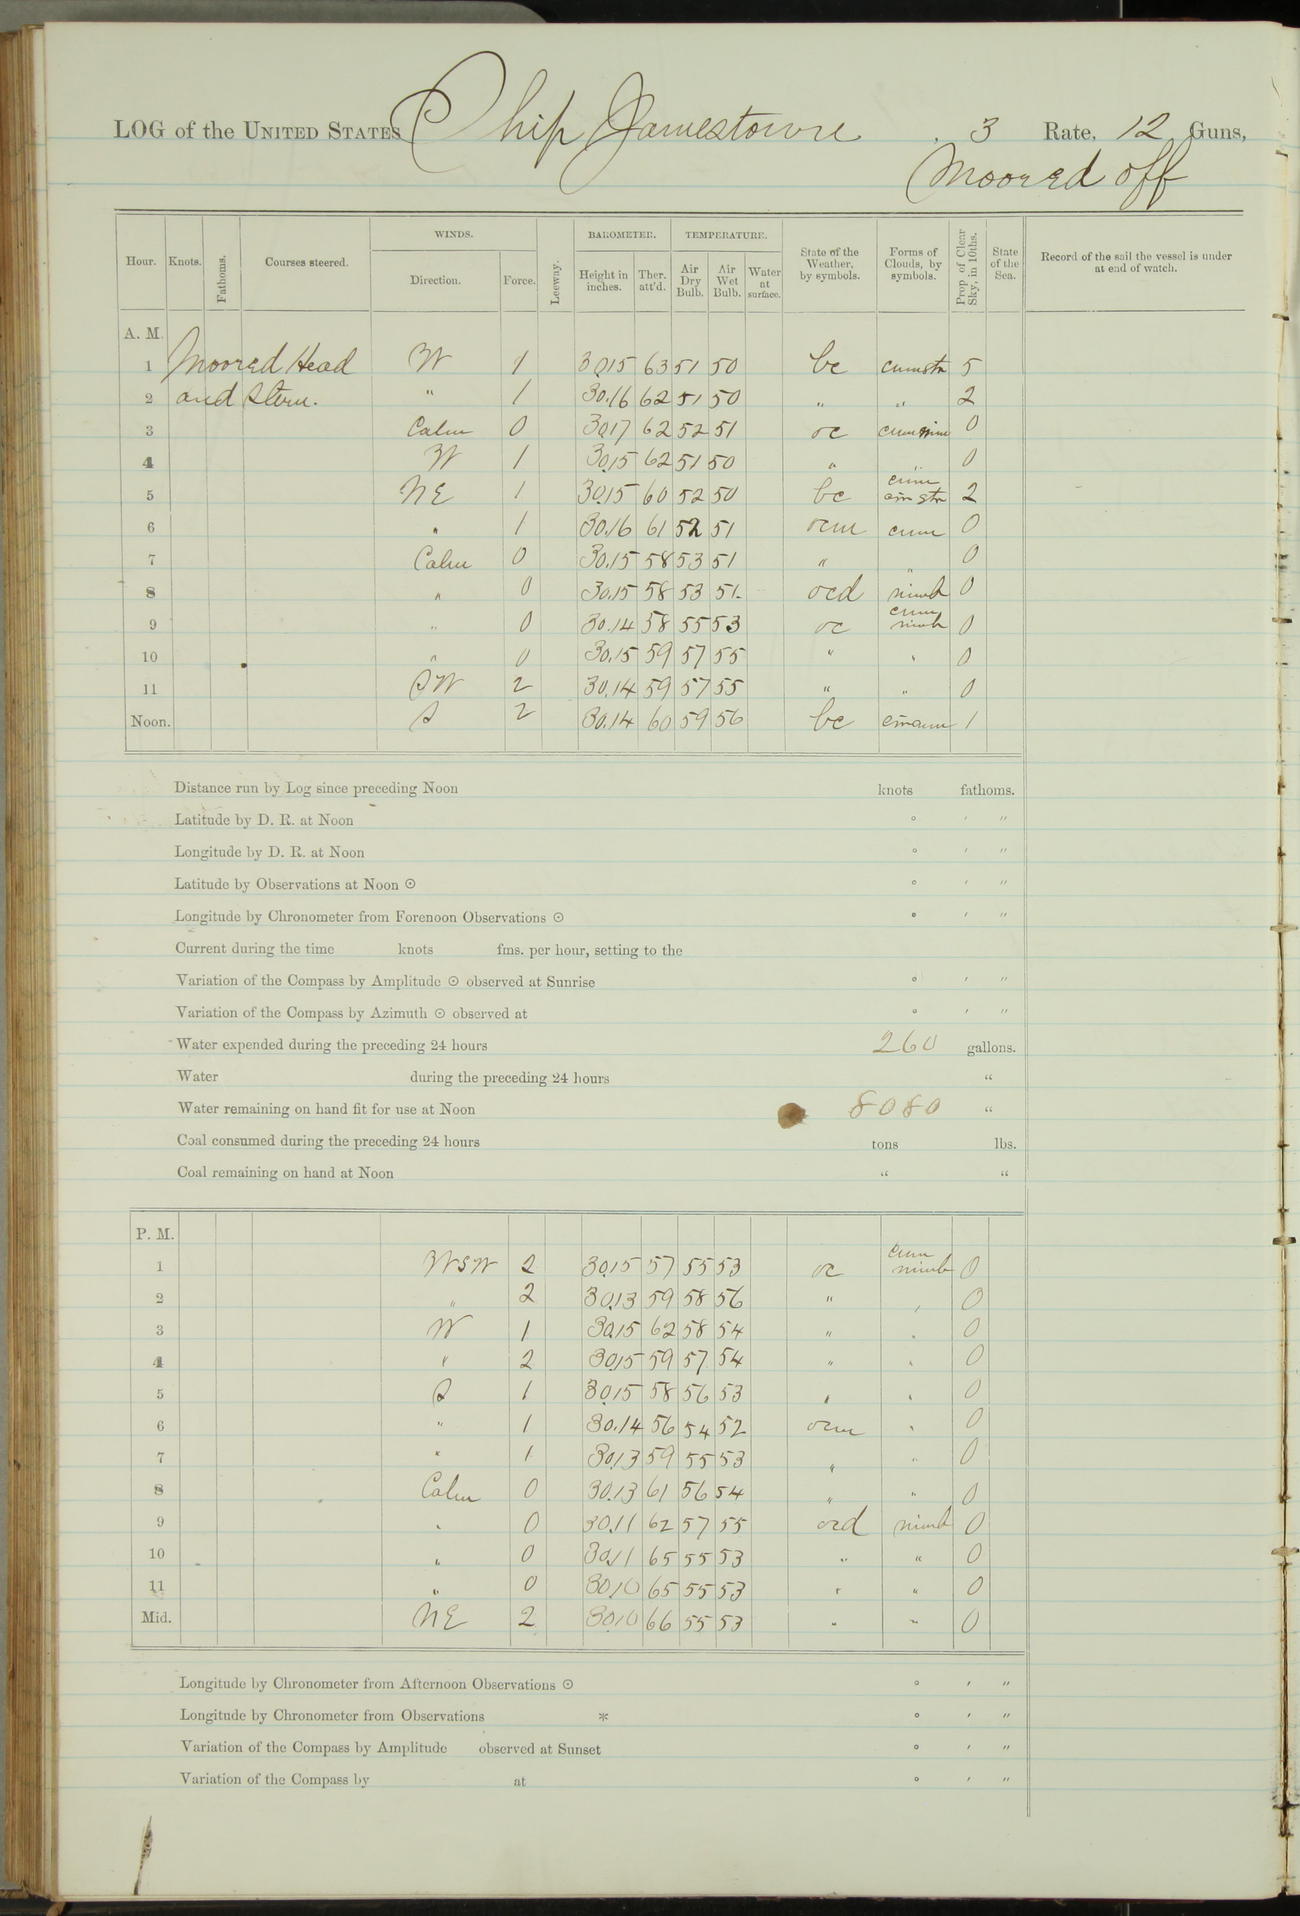 LOG of the UNITED STATES Ship Jamestown, 3 Rate, 12 Guns,
Moored off
WINDS. BAROMETER. TEMPERATURE.
Hour. Knots. Fathoms. Courses steered. Direction. Force. Leeway. Height in inches. Ther. att'd. Air Dry Bulb. Air Wet Bulb. Water at surface. State of the Weather, by symbols. Forms of Clouds, by symbols. Prop. of Clear Sky, in 10ths. State of the Sea. Record of the sail the vessel is under at end of watch.
A. M.
1 Moored Head W 1 30.15 63 51 50 bc cumstr 5
2 and Stern. " 1 30.16 62 51 50 " " 2
3 Calm 0 30.17 62 52 51 oc cumnim 0
4 W 1 30.15 62 51 50 " " 0
5 NE 1 30.15 60 52 50 bc cum cirstr 2
6 " 1 30.16 61 52 51 ocm cum 0
7 Calm 0 30.15 58 53 51 " " 0
8 " 0 30.15 58 53 51 ocd nimb 0
9 " 0 30.14 58 55 53 oc cum nimb 0
10 " 0 30.15 59 57 55 " " 0
11 SW 2 30.14 59 57 55 " " 0
Noon. S 2 30.14 60 59 56 bc circum 1
Distance run by Log since preceding Noon knots fathoms.
Latitude by D. R. at Noon ° ′ ″
Longitude by D. R. at Noon ° ′ ″
Latitude by Observations at Noon ☉ ° ′ ″
Longitude by Chronometer from Forenoon Observations ☉ ° ′ ″
Current during the time knots fms. per hour, setting to the
Variation of the Compass by Amplitude ☉ observed at Sunrise ° ′ ″
Variation of the Compass by Azimuth ☉ observed at ° ′ ″
Water expended during the preceding 24 hours 260 gallons.
Water during the preceding 24 hours "
Water remaining on hand fit for use at Noon 8080 "
Coal consumed during the preceding 24 hours tons lbs.
Coal remaining on hand at Noon " "
P. M.
1 WSW 2 30.15 57 55 53 oc cum nimb 0
2 " 2 30.13 59 58 56 " " 0
3 W 1 30.15 62 58 54 " " 0
4 " 2 30.15 59 57 54 " " 0
5 S 1 30.15 58 56 53 " " 0
6 " 1 30.14 56 54 52 ocm " 0
7 " 1 30.13 59 55 53 " " 0
8 Calm 0 30.13 61 56 54 " " 0
9 " 0 30.11 62 57 55 ocd nimb 0
10 " 0 30.11 65 55 53 " " 0
11 " 0 30.10 65 55 53 " " 0
Mid. NE 2 30.10 66 55 53 " " 0
Longitude by Chronometer from Afternoon Observations ☉ ° ′ ″
Longitude by Chronometer from Observations * ° ′ ″
Variation of the Compass by Amplitude observed at Sunset ° ′ ″
Variation of the Compass by at ° ′ ″